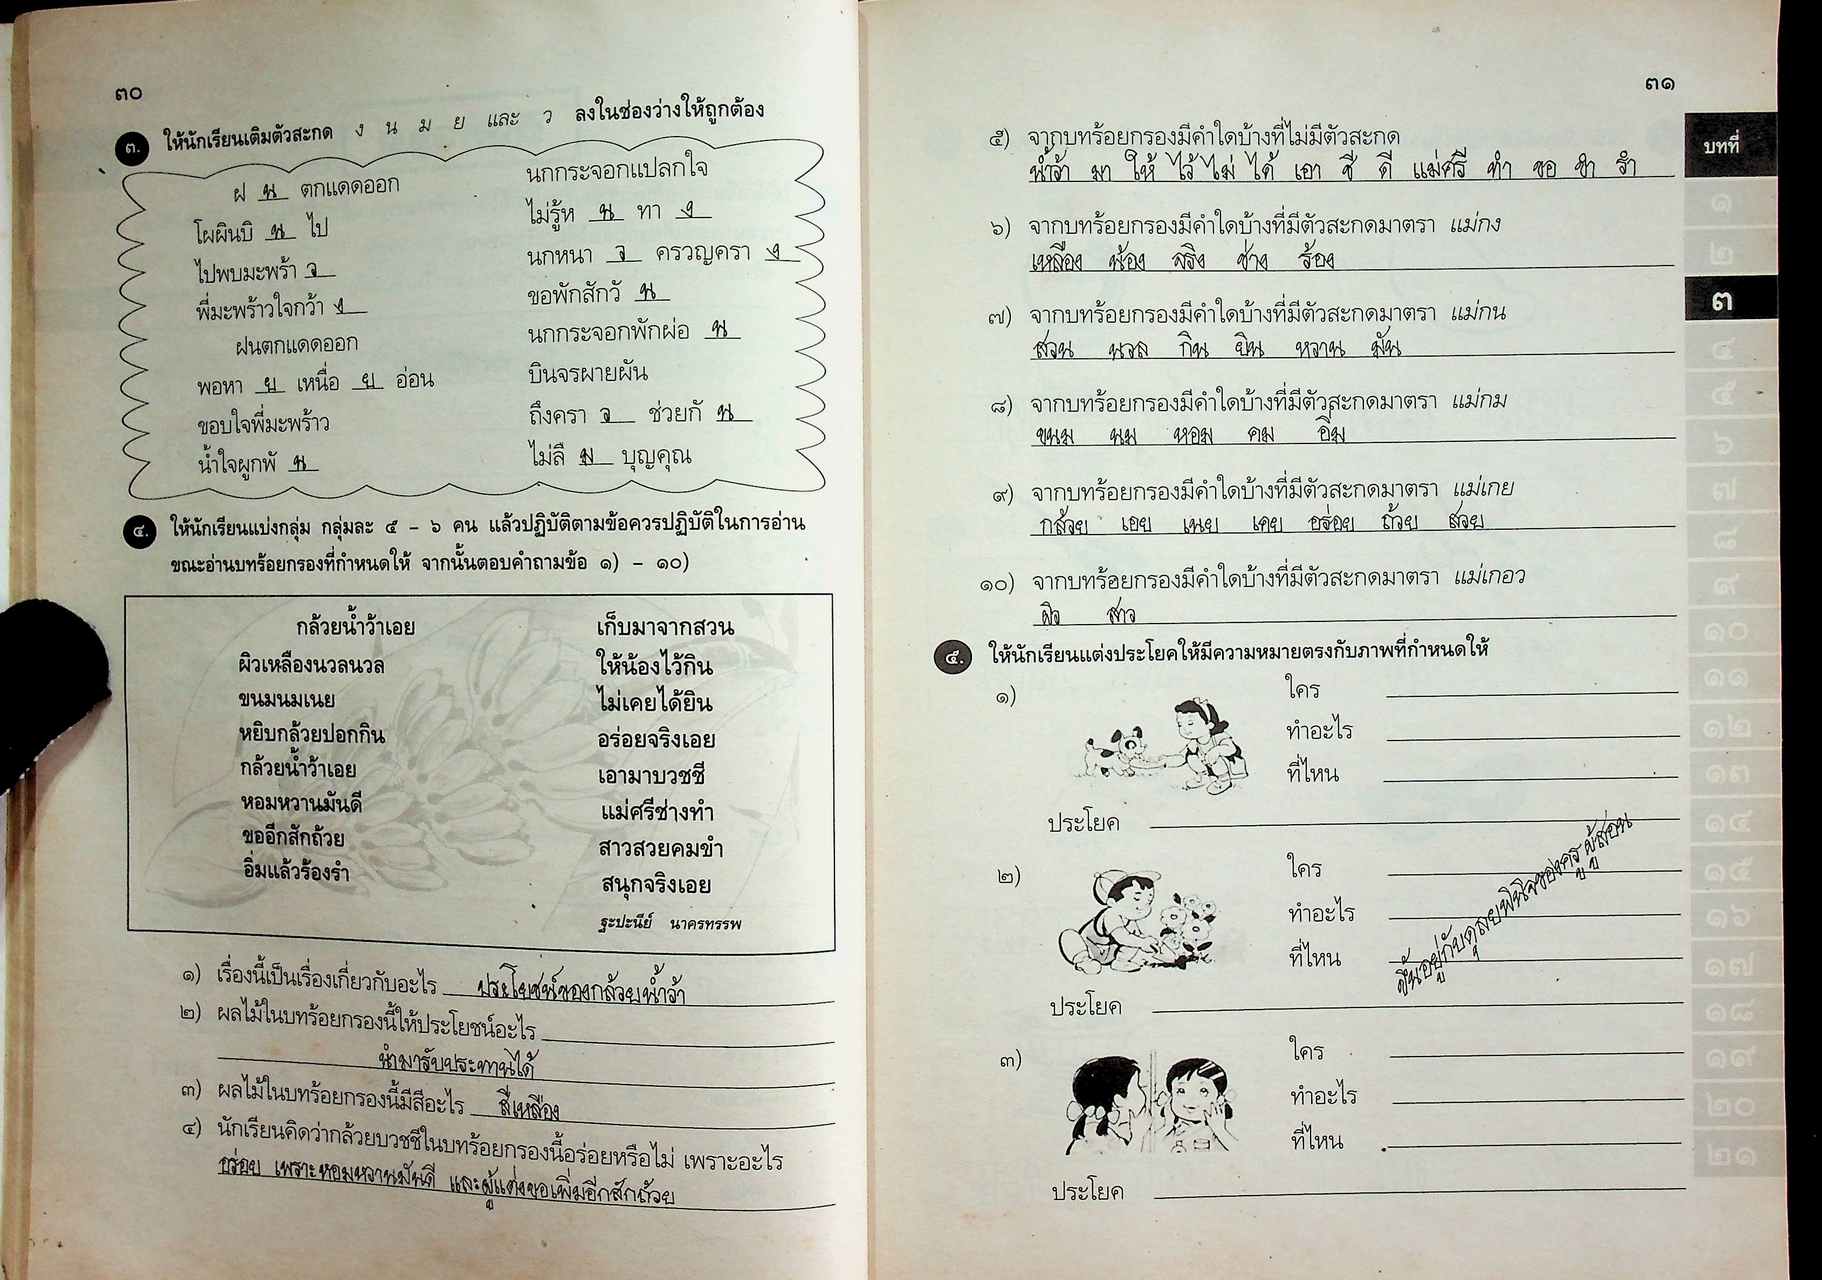 ๓๐
๓. ให้นักเรียนเติมตัวสะกด ง น ม ย และ ว ลงในช่องว่างให้ถูกต้อง
ฝ น ตกแดดออก
โผผินบิ น ไป
ไปพบมะพร้า ว
พี่มะพร้าวใจกว้า ง
ฝนตกแดดออก
พอหา ย เหนื่อ ย อ่อน
ขอบใจพี่มะพร้าว
น้ำใจผูกพั น
นกกระจอกแปลกใจ
ไม่รู้ห น ทา ง
นกหนา ว ครวญครา ง
ขอพักสักวั น
นกกระจอกพักผ่อ น
บินจรผายผัน
ถึงครา ว ช่วยกั น
ไม่ลื ม บุญคุณ
๔. ให้นักเรียนแบ่งกลุ่ม กลุ่มละ ๕ - ๖ คน แล้วปฏิบัติตามข้อควรปฏิบัติในการอ่าน
ขณะอ่านบทร้อยกรองที่กำหนดให้ จากนั้นตอบคำถามข้อ ๑) - ๑๐)
กล้วยน้ำว้าเอย
ผิวเหลืองนวลนวล
ขนมนมเนย
หยิบกล้วยปอกกิน
กล้วยน้ำว้าเอย
หอมหวานมันดี
ขออีกสักถ้วย
อิ่มแล้วร้องรำ
เก็บมาจากสวน
ให้น้องไว้กิน
ไม่เคยได้ยิน
อร่อยจริงเอย
เอามาบวชชี
แม่ศรีช่างทำ
สาวสวยคมขำ
สนุกจริงเอย
ฐะปะนีย์ นาครทรรพ
๑) เรื่องนี้เป็นเรื่องเกี่ยวกับอะไร ประโยชน์ของกล้วยน้ำว้า
๒) ผลไม้ในบทร้อยกรองนี้ให้ประโยชน์อะไร
นำมารับประทานได้
๓) ผลไม้ในบทร้อยกรองนี้มีสีอะไร สีเหลือง
๔) นักเรียนคิดว่ากล้วยบวชชีในบทร้อยกรองนี้อร่อยหรือไม่ เพราะอะไร
อร่อย เพราะหอมหวานมันดี และผู้แต่งขอเพิ่มอีกสักถ้วย
๓๑
๕) จากบทร้อยกรองมีคำใดบ้างที่ไม่มีตัวสะกด
น้ำว้า มา ให้ ไว้ ไม่ ได้ เอา ชี ดี แม่ศรี ทำ ขอ ขำ รำ
๖) จากบทร้อยกรองมีคำใดบ้างที่มีตัวสะกดมาตรา แม่กง
เหลือง น้อง จริง ช่าง ร้อง
๗) จากบทร้อยกรองมีคำใดบ้างที่มีตัวสะกดมาตรา แม่กน
สวน นวล กิน ยิน หวาน มัน
๘) จากบทร้อยกรองมีคำใดบ้างที่มีตัวสะกดมาตรา แม่กม
ขนม นม หอม คม อิ่ม
๙) จากบทร้อยกรองมีคำใดบ้างที่มีตัวสะกดมาตรา แม่เกย
กล้วย เอย เนย เคย อร่อย ถ้วย สวย
๑๐) จากบทร้อยกรองมีคำใดบ้างที่มีตัวสะกดมาตรา แม่เกอว
ผิว สาว
๕. ให้นักเรียนแต่งประโยคให้มีความหมายตรงกับภาพที่กำหนดให้
๑)
ใคร
ทำอะไร
ที่ไหน
ประโยค
๒)
ใคร
ทำอะไร
ที่ไหน
ประโยค
ขึ้นอยู่กับดุลยพินิจของครูผู้สอน
๓)
ใคร
ทำอะไร
ที่ไหน
ประโยค
บทที่
๑
๒
๓
๔
๕
๖
๗
๘
๙
๑๐
๑๑
๑๒
๑๓
๑๔
๑๕
๑๖
๑๗
๑๘
๑๙
๒๐
๒๑